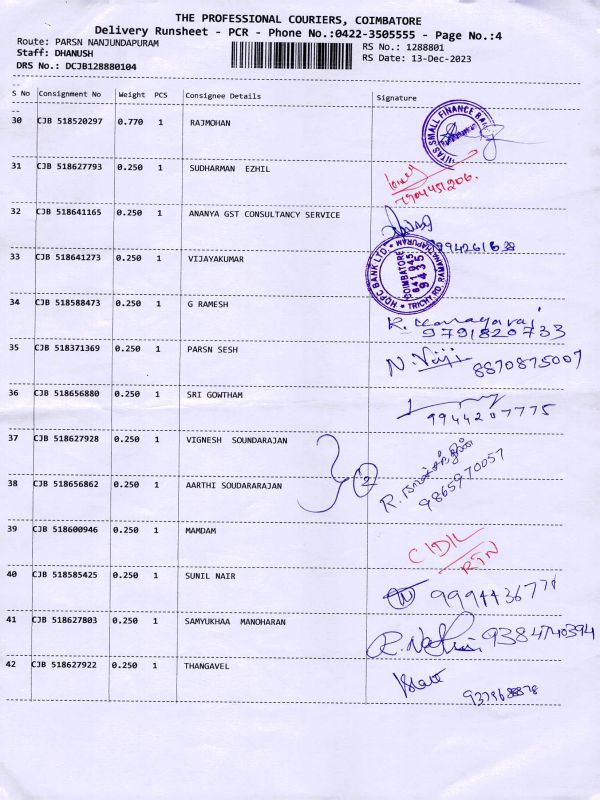 THE PROFESSIONAL COURIERS, COIMBATORE
Delivery Runsheet - PCR - Phone No.:0422-3505555 - Page No.:4
Route: PARSN NANJUNDAPURAM
RS No.: 1288801
Staff: DHANUSH
RS Date: 13-Dec-2023
DRS No.: DCJB128880104
S No Consignment No Weight PCS Consignee Details Signature
30 CJB 518520297 0.770 1 RAJMOHAN
SMALL FINANCE
31 CJB 518627793 0.250 1 SUDHARMAN EZHIL
7904451206.
32 CJB 518641165 0.250 1 ANANYA GST CONSULTANCY SERVICE
33 CJB 518641273 0.250 1 VIJAYAKUMAR
HDFC BANK LTD. * TRICHY RD, RAMANATHAPURAM *
COIMBATORE
641 045
9435
34 CJB 518588473 0.250 1 G RAMESH
9791820733
35 CJB 518371369 0.250 1 PARSN SESH
N. Viji 8870875007
36 CJB 518656880 0.250 1 SRI GOWTHAM
9944207775
37 CJB 518627928 0.250 1 VIGNESH SOUNDARAJAN
38 CJB 518656862 0.250 1 AARTHI SOUDARARAJAN
2
9865970057
39 CJB 518600946 0.250 1 MAMDAM
RTN
40 CJB 518585425 0.250 1 SUNIL NAIR
41 CJB 518627803 0.250 1 SAMYUKHAA MANOHARAN
9384740394
42 CJB 518627922 0.250 1 THANGAVEL